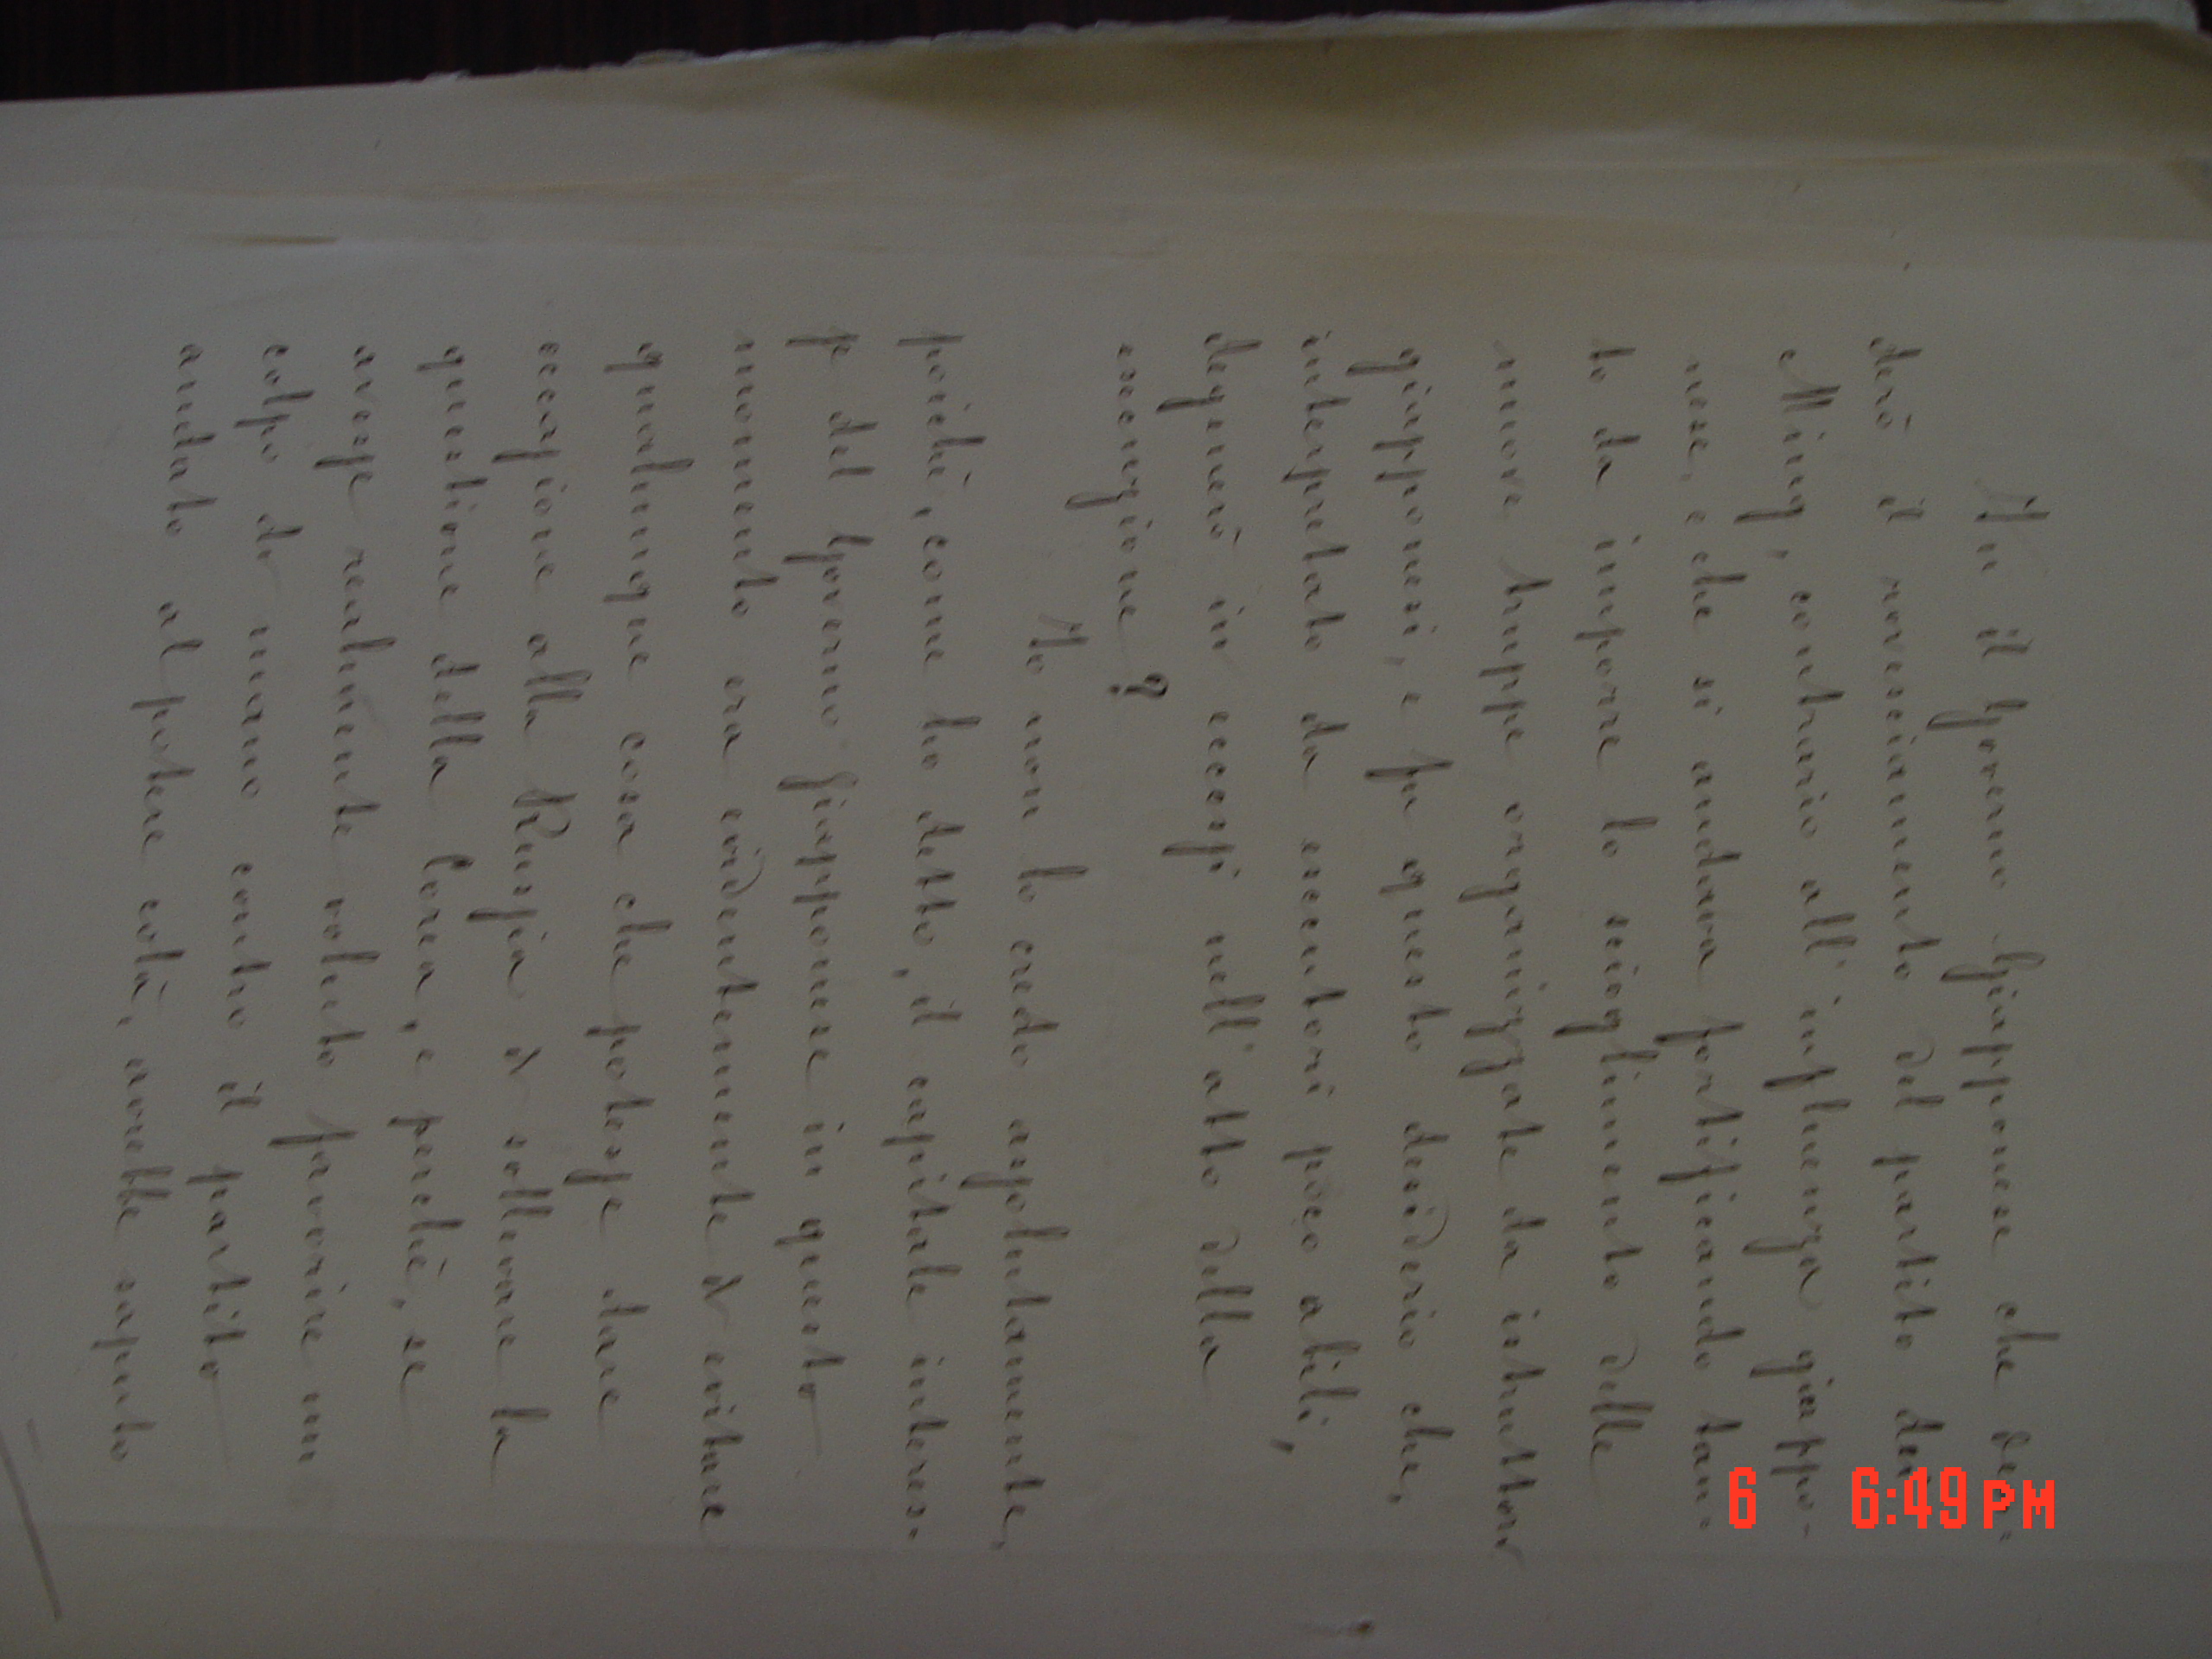 Fu il Governo Giapponese che desi-
derò il rovesciamento del partito dei
Ming, contrario all'influenza giappo-
nese, e che si andava fortificando tan-
to da imporre lo scioglimento delle
nuove truppe organizzate da istruttori
giapponesi, e fu questo desiderio che,
interpretato da esecutori poco abili,
degenerò in eccessi nell'atto della
esecuzione?
Io non lo credo assolutamente,
poiché, come ho detto, il capitale interes-
se del Governo Giapponese in questo
momento era evidentemente di evitare
qualunque cosa che potesse dare
occasione alla Russia di sollevare la
questione della Corea, e perché, se
avesse realmente voluto favorire un
colpo di mano contro il partito
andato al potere colà, avrebbe saputo
6 6:49 PM